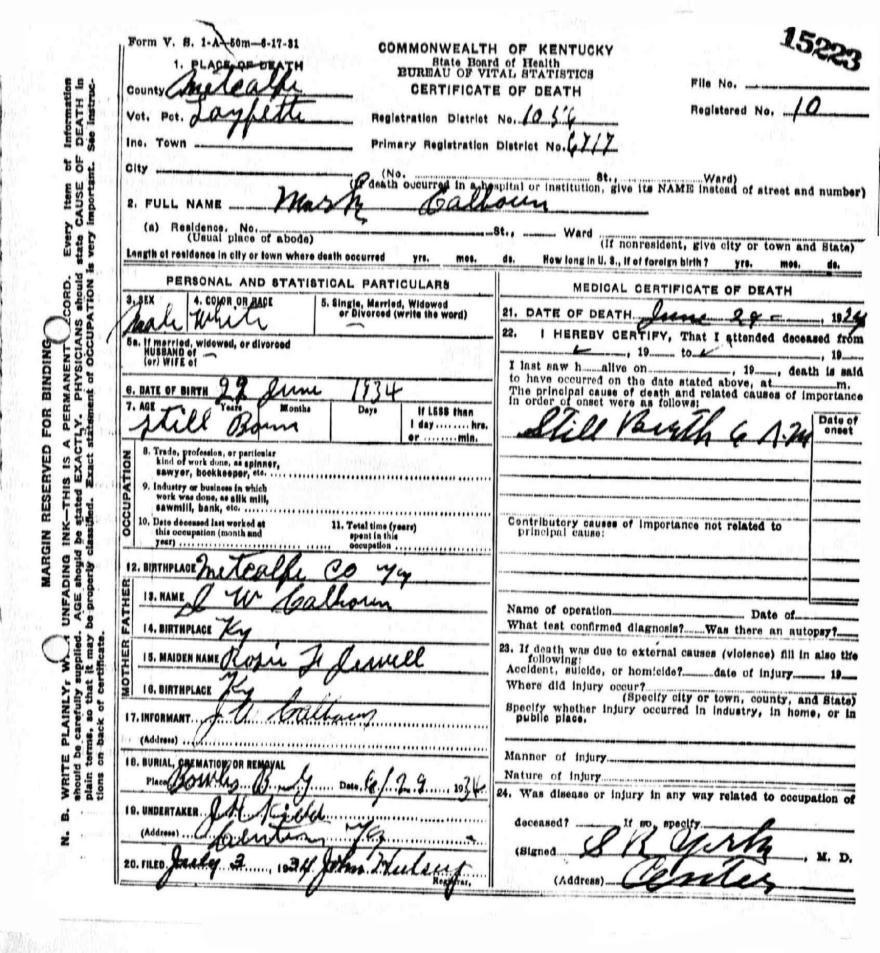 15223
Form V. S. 1-A—50m—6-17-31
COMMONWEALTH OF KENTUCKY
State Board of Health
BUREAU OF VITAL STATISTICS
CERTIFICATE OF DEATH
1. PLACE OF DEATH
County Metcalfe
Vot. Pct.
Inc. Town
City
File No.
Registered No. 10
Registration District No. 1056
Primary Registration District No. 6717
(No. St., Ward)
(If death occurred in a hospital or institution, give its NAME instead of street and number)
2. FULL NAME Mark Calhoun
(a) Residence. No. St., Ward
(Usual place of abode) (If nonresident, give city or town and State)
Length of residence in city or town where death occurred yrs. mos. ds. How long in U. S., if of foreign birth? yrs. mos. ds.
PERSONAL AND STATISTICAL PARTICULARS
3. SEX 4. COLOR OR RACE 5. Single, Married, Widowed
or Divorced (write the word)
Male White
5a. If married, widowed, or divorced
HUSBAND of
(or) WIFE of
6. DATE OF BIRTH 29 June 1934
7. AGE Years Months Days If LESS than
1 day hrs.
or min.
Still Born
OCCUPATION
8. Trade, profession, or particular
kind of work done, as spinner,
sawyer, bookkeeper, etc.
9. Industry or business in which
work was done, as silk mill,
sawmill, bank, etc.
10. Date deceased last worked at
this occupation (month and
year)
11. Total time (years)
spent in this
occupation
12. BIRTHPLACE Metcalfe Co Ky
FATHER
13. NAME J W Calhoun
14. BIRTHPLACE Ky
MOTHER
15. MAIDEN NAME Rosie F Jewell
16. BIRTHPLACE Ky
17. INFORMANT Calhoun
(Address)
18. BURIAL, CREMATION OR REMOVAL
Place Bowles B. G Date 6/29 1934
19. UNDERTAKER J H Kidd
(Address) Ky
20. FILED July 3, 1934 John Hulsey
Registrar.
MEDICAL CERTIFICATE OF DEATH
21. DATE OF DEATH June 29 - , 1934
22. I HEREBY CERTIFY, That I attended deceased from
, 19 to , 19
I last saw h alive on , 19 , death is said
to have occurred on the date stated above, at m.
The principal cause of death and related causes of importance
in order of onset were as follows:
Date of
onset
Still Birth 6 A.M
Contributory causes of importance not related to
principal cause:
Name of operation Date of
What test confirmed diagnosis? Was there an autopsy?
23. If death was due to external causes (violence) fill in also the
following:
Accident, suicide, or homicide? date of injury 19
Where did injury occur?
(Specify city or town, county, and State)
Specify whether injury occurred in industry, in home, or in
public place.
Manner of injury
Nature of injury
24. Was disease or injury in any way related to occupation of
deceased? If so, specify
(Signed S B York, M. D.
(Address) Center
MARGIN RESERVED FOR BINDING
N. B. WRITE PLAINLY, UNFADING INK—THIS IS A PERMANENT CORD. Every item of information
should be carefully supplied. AGE should be stated EXACTLY. PHYSICIANS should state CAUSE OF DEATH in
plain terms, so that it may be properly classified. Exact statement of OCCUPATION is very important. See instruc-
tions on back of certificate.